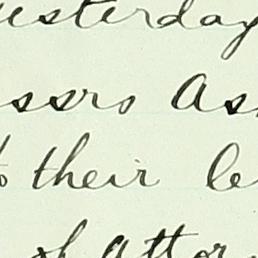 yesterday
ssrs As
to their le
of Attor